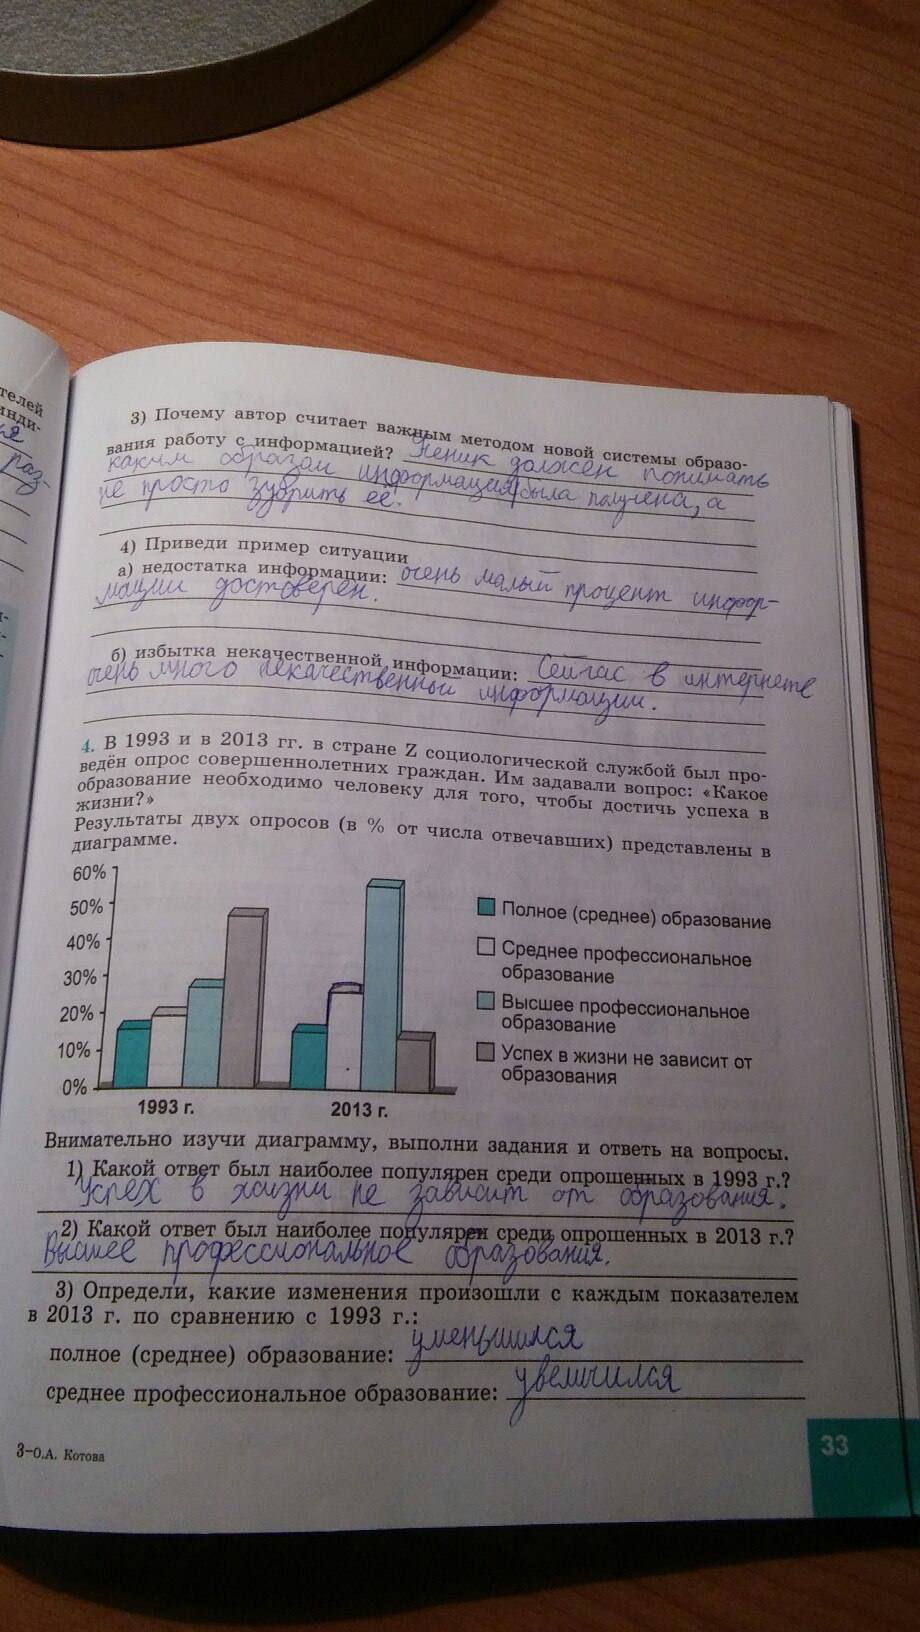 телей
инди-
ся
раз-
3) Почему автор считает важным методом новой системы образо-
вания работу с информацией? Ученик должен понимать
каким образом информация была получена, а
не просто зубрить её.
4) Приведи пример ситуации
а) недостатка информации: очень малый процент инфор-
мации достоверен.
б) избытка некачественной информации: Сейчас в интернете
очень много некачественный информации.
4. В 1993 и в 2013 гг. в стране Z социологической службой был про-
ведён опрос совершеннолетних граждан. Им задавали вопрос: «Какое
образование необходимо человеку для того, чтобы достичь успеха в
жизни?»
Результаты двух опросов (в % от числа отвечавших) представлены в
диаграмме.
60%
50%
40%
30%
20%
10%
0%
1993 г.
2013 г.
Полное (среднее) образование
Среднее профессиональное
образование
Высшее профессиональное
образование
Успех в жизни не зависит от
образования
Внимательно изучи диаграмму, выполни задания и ответь на вопросы.
1) Какой ответ был наиболее популярен среди опрошенных в 1993 г.?
Успех в жизни не зависит от образования.
2) Какой ответ был наиболее популярен среди опрошенных в 2013 г.?
Высшее профессиональное образования.
3) Определи, какие изменения произошли с каждым показателем
в 2013 г. по сравнению с 1993 г.:
полное (среднее) образование: уменьшился
среднее профессиональное образование: увеличился
3–О.А. Котова
33